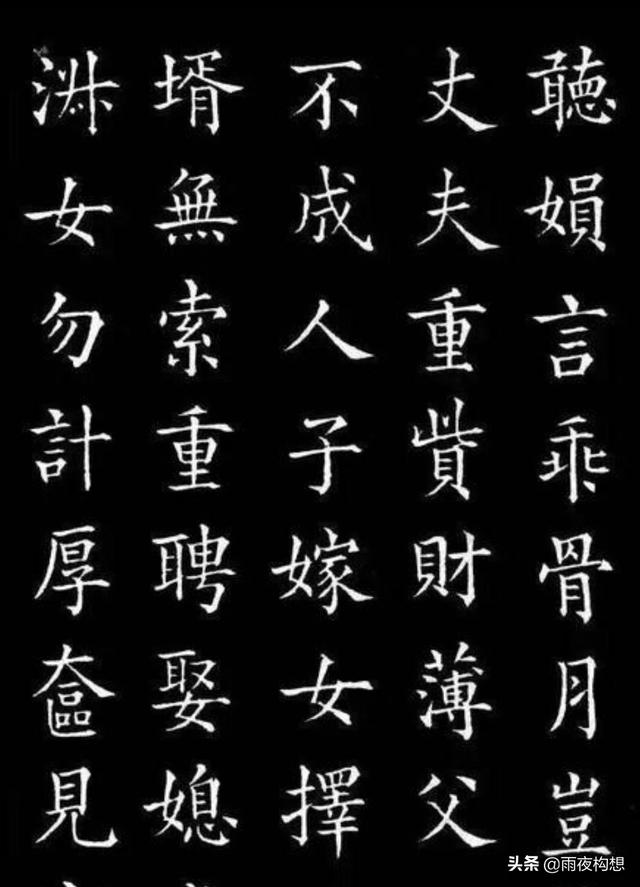 聽媍言乖骨月豈
丈夫重貲財薄父
不成人子嫁女擇
壻無索重聘娶媳
淑女勿計厚奩見
头条 @雨夜构想